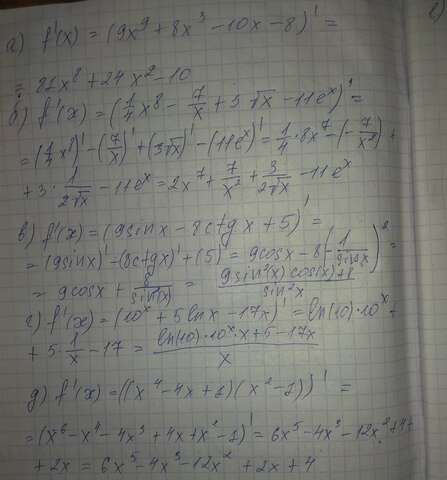 а) f'(x) = (9x⁹ + 8x³ − 10x − 8)' =
= 81x⁸ + 24x² − 10
б) f'(x) = (1/4 x⁸ − 7/x + 3√x − 11eˣ)' =
= (1/4 x⁸)' − (7/x)' + (3√x)' − (11eˣ)' = 1/4 · 8x⁷ − (−7/x²) +
+ 3 · 1/(2√x) − 11eˣ = 2x⁷ + 7/x² + 3/(2√x) − 11eˣ
в) f'(x) = (9sinx − 8ctgx + 5)' =
= (9sinx)' − (8ctgx)' + (5)' = 9cosx − 8(−1/sin²x)² =
= 9cosx + 8/sin²(x) = (9sin²(x)cos(x) + 8)/sin²x
г) f'(x) = (10ˣ + 5lnx − 17x)' = ln(10)·10ˣ +
+ 5 · 1/x − 17 = (ln(10)·10ˣ·x + 5 − 17x)/x
д) f'(x) = ((x⁴ − 4x + 1)(x² − 1))' =
= (x⁶ − x⁴ − 4x³ + 4x + x² − 1)' = 6x⁵ − 4x³ − 12x² + 4 +
+ 2x = 6x⁵ − 4x³ − 12x² + 2x + 4